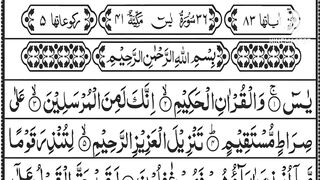 اٰیاتها ۸۳ ۳۶ سُوْرَةُ يٰسٓ مَكِّيَّةٌ ۴۱ ركوعاتها ۵
بِسْمِ اللّٰهِ الرَّحْمٰنِ الرَّحِيْمِ
يٰسٓ ۚ ۝۱ وَالْقُرْاٰنِ الْحَكِيْمِ ۙ ۝۲ اِنَّكَ لَمِنَ الْمُرْسَلِيْنَ ۙ ۝۳ عَلٰى
صِرَاطٍ مُّسْتَقِيْمٍ ؕ ۝۴ تَنْزِيْلَ الْعَزِيْزِ الرَّحِيْمِ ۙ ۝۵ لِتُنْذِرَ قَوْمًا